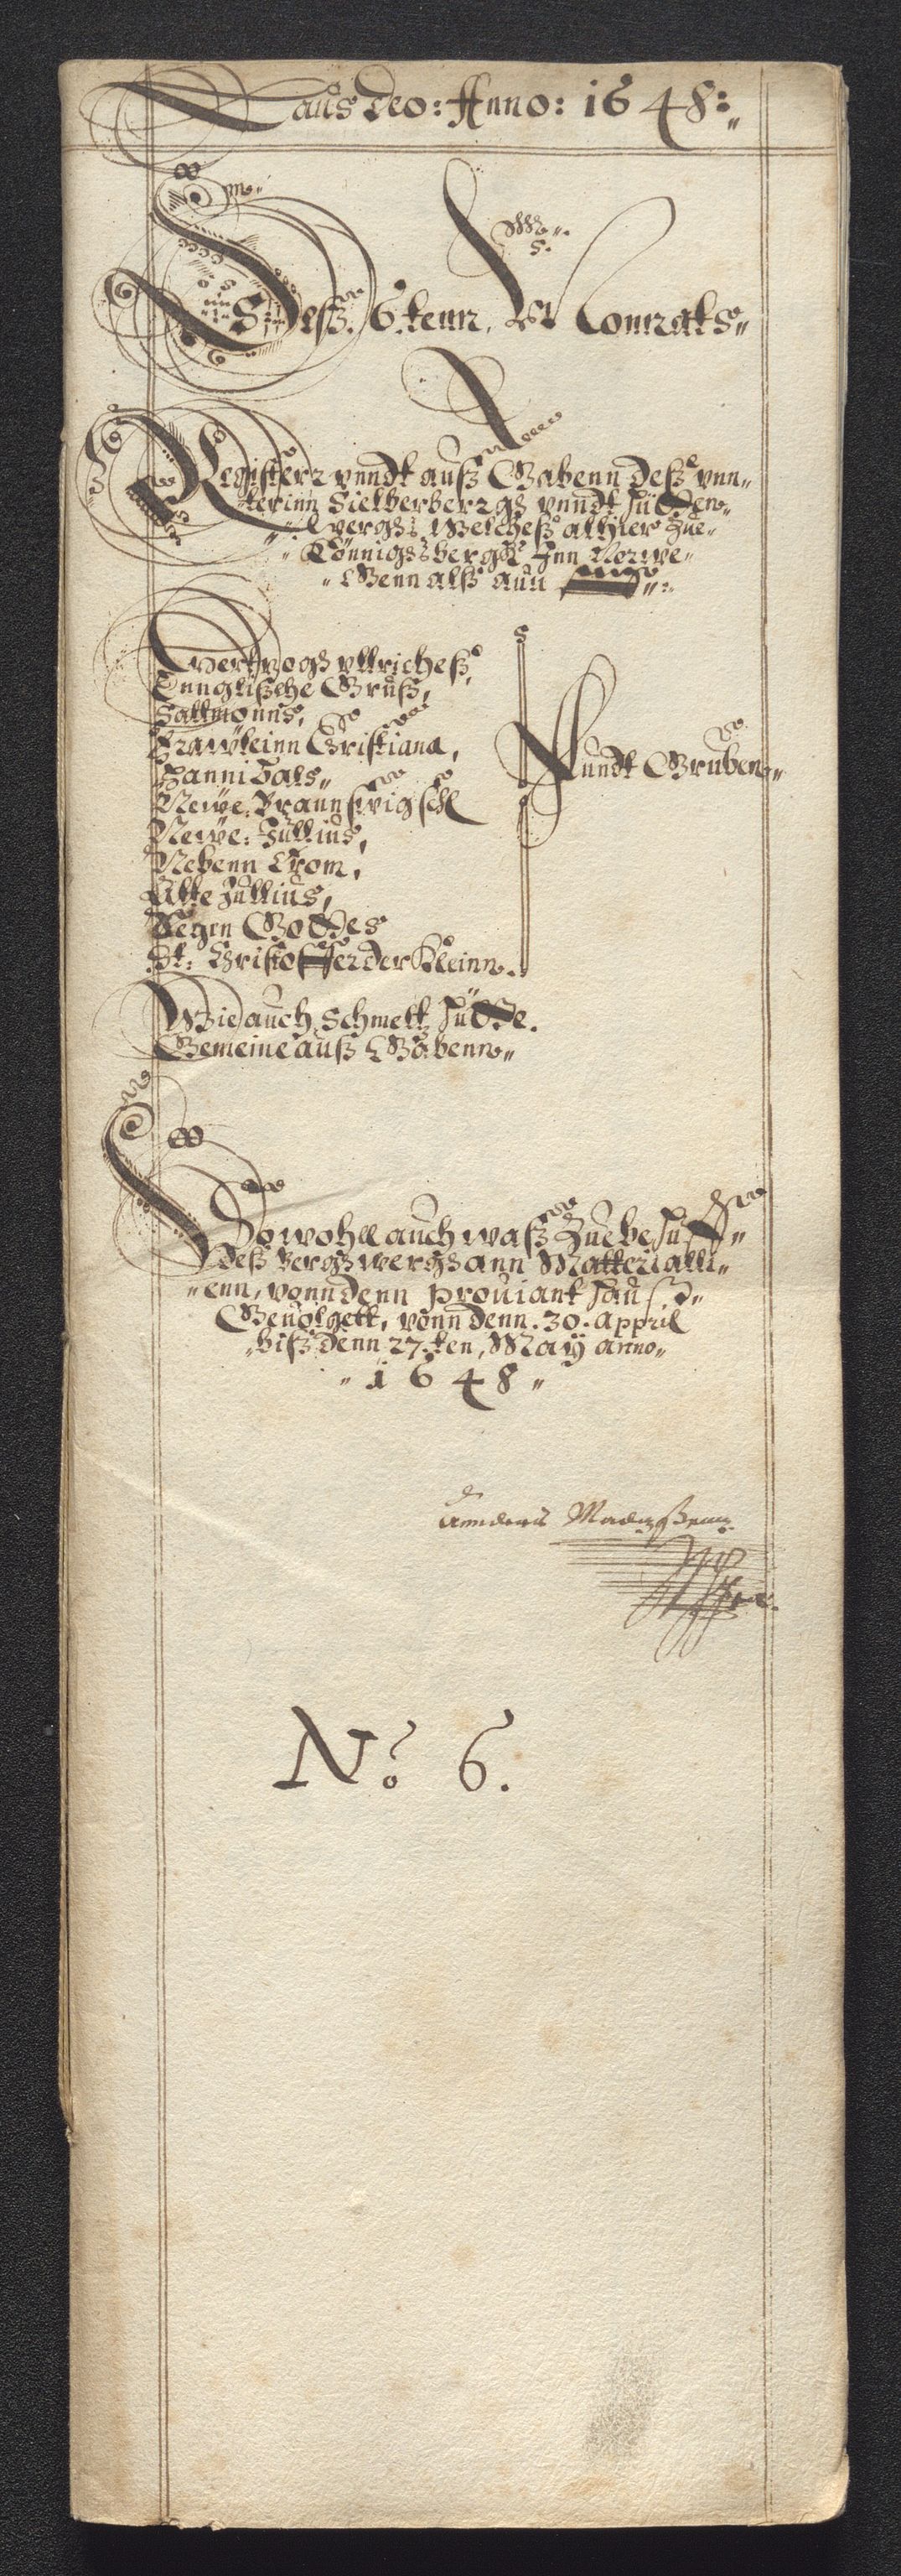 Laus Deo: Anno: 1648:
Deß. 6. tenn. Monnats
Registerr vnndt auß Gabenn deß vnn-
terinn Sielberbergs vnndt Hütten-
wergs Welcheß alhier zue-
Könnigsbergk Inn Norwe-
Genn alß ann
Hertzogs Ullricheß,
Ennglische Gruß,
Sallmonns,
Frawleinn Cristiana,
Hannibals
Newe: Braunswigsch
Fundt Gruben
Newe: Jullius,
Nebenn Crom,
Alte Jullius,
Segen Gottes
St: Cristoffer der Kleinn.
Wie auch Schmeltz Hütte.
Gemeine auß Gabenn
So wohll auch waß zue behuff
deß Bergwergs ann Matterialli-
enn, vonn denn proviant hauß
Gevolgett, vonn denn. 30. appril
biß denn 27. ten, Maÿ anno
1648
Anders
No 6.